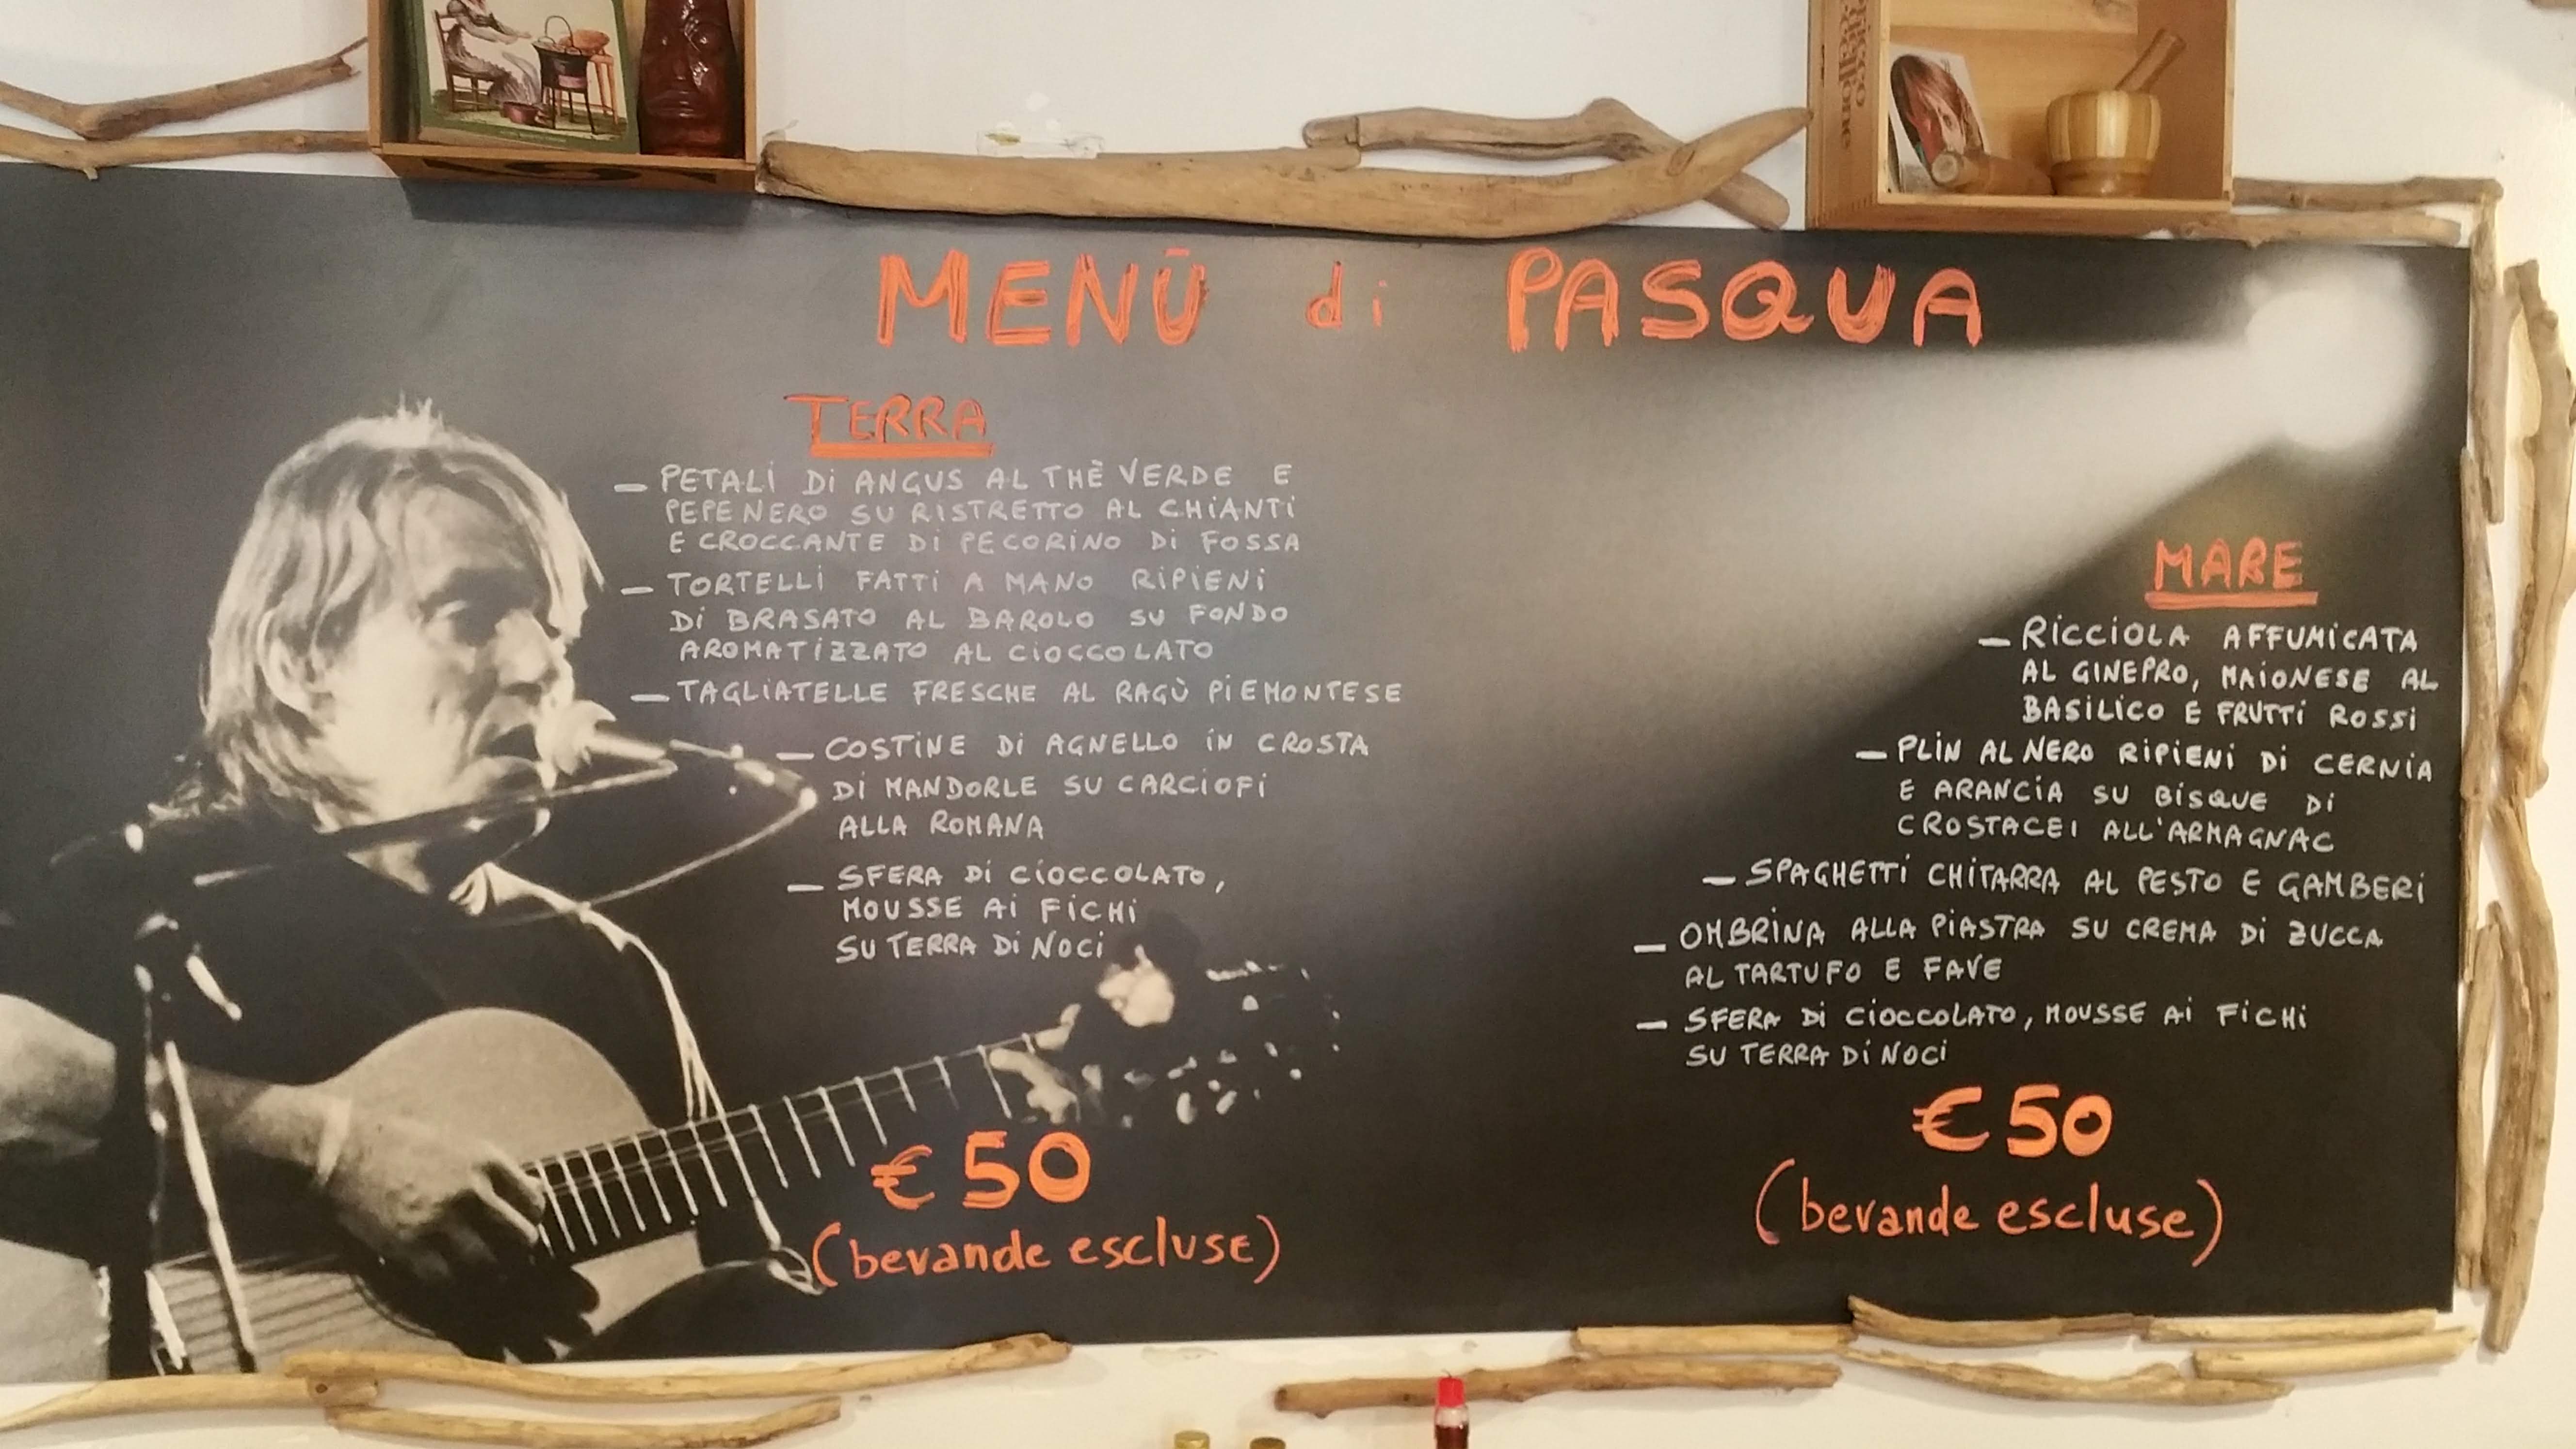 MENŪ di PASQUA
TERRA
- PETALI DI ANGUS AL THÈ VERDE E
PEPE NERO SU RISTRETTO AL CHIANTI
E CROCCANTE DI PECORINO DI FOSSA
- TORTELLI FATTI A MANO RIPIENI
DI BRASATO AL BAROLO SU FONDO
AROMATIZZATO AL CIOCCOLATO
- TAGLIATELLE FRESCHE AL RAGÙ PIEMONTESE
- COSTINE DI AGNELLO IN CROSTA
DI MANDORLE SU CARCIOFI
ALLA ROMANA
- SFERA DI CIOCCOLATO,
MOUSSE AI FICHI
SU TERRA DI NOCI
€ 50
(bevande escluse)
MARE
- RICCIOLA AFFUMICATA
AL GINEPRO, MAIONESE AL
BASILICO E FRUTTI ROSSI
- PLIN AL NERO RIPIENI DI CERNIA
E ARANCIA SU BISQUE DI
CROSTACEI ALL'ARMAGNAC
- SPAGHETTI CHITARRA AL PESTO E GAMBERI
- OMBRINA ALLA PIASTRA SU CREMA DI ZUCCA
AL TARTUFO E FAVE
- SFERA DI CIOCCOLATO, MOUSSE AI FICHI
SU TERRA DI NOCI
€ 50
(bevande escluse)